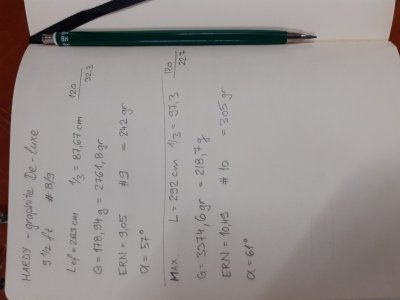 HARDY - graphite De-Luxe
9 1/2 ft #8/9
Lef = 263 cm 1/3 = 87,67 cm 120/32.3
G = 178,94 g = 2761,8 gr
ERN = 9,05 #9 = 242 gr
α = 57°
MAX L = 292 cm 1/3 = 97,3 120/22.7
G = 3374,6 gr = 218,7 g
ERN = 10,49 #10 = 305 gr
α = 61°
HB